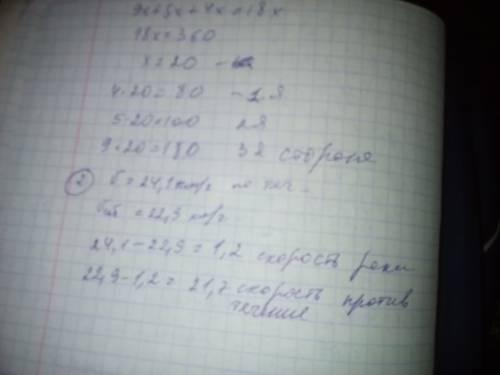 9x+5x+4x=18x
18x=360
x=20
4·20=80 - 1 я
5·20=100 2я
9·20=180 3я сторона
② V=24,1 км/ч по теч.
=22,9 км/ч
24,1-22,9=1,2 скорость реки
22,9-1,2=21,7 скорость против
течение